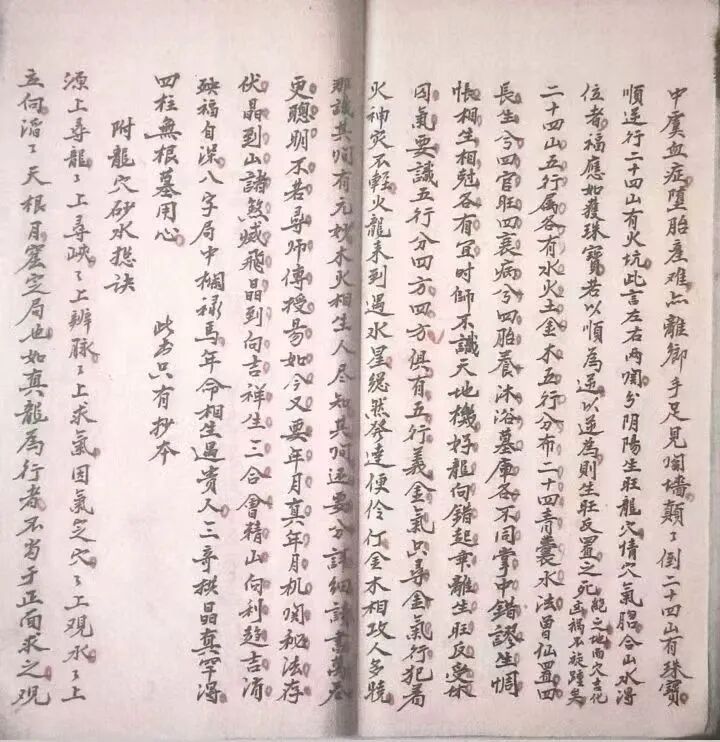 中虞血症墮胎產难占離鄉手足見鬩墻顛〻倒二十四山有珠寶
順逆行二十四山有火坑此言左右兩関分阴陽生旺龍穴情穴氣脗合山水得
位者福應如獲珠寶若以順為逆以逆為則生旺反置之死絕之地而穴吉化凶禍不旋踵矣
二十四山五行属各有水火土金木五行分布二十四青囊水法曾仙置四
長生兮四官旺四衰病兮四胎養沐浴墓庫各不同掌中錯謬生惆
悵相生相尅各有宜时師不識天地機好龍向錯起乖離生旺反受
因氣要識五行分四方四方俱有五行義金氣占尋金氣行犯着
火神灾不輕火龍来到遇水星縂然發達便伶仃金木相攻人多曉
那識其间有元妙木火相生人尽知其间还要分詳細詩書萬卷
更聰明不若尋师傳授易如今又要年月真年月机関秘法存
伏晶到山諸煞滅飛晶到向吉祥生三合會精山向利趋吉消
殃福自深八字局中楜禄馬年命相生遇貴人三奇拱晶真罕得
四柱無根莫用心 此书只有抄本
附龍穴砂水揔訣
源上尋龍〻上尋峽〻上辨脉〻上求氣因氣定穴〻上观水〻上
立向滔〻天根月窟定局也如真龍為行者不当于正面求之观